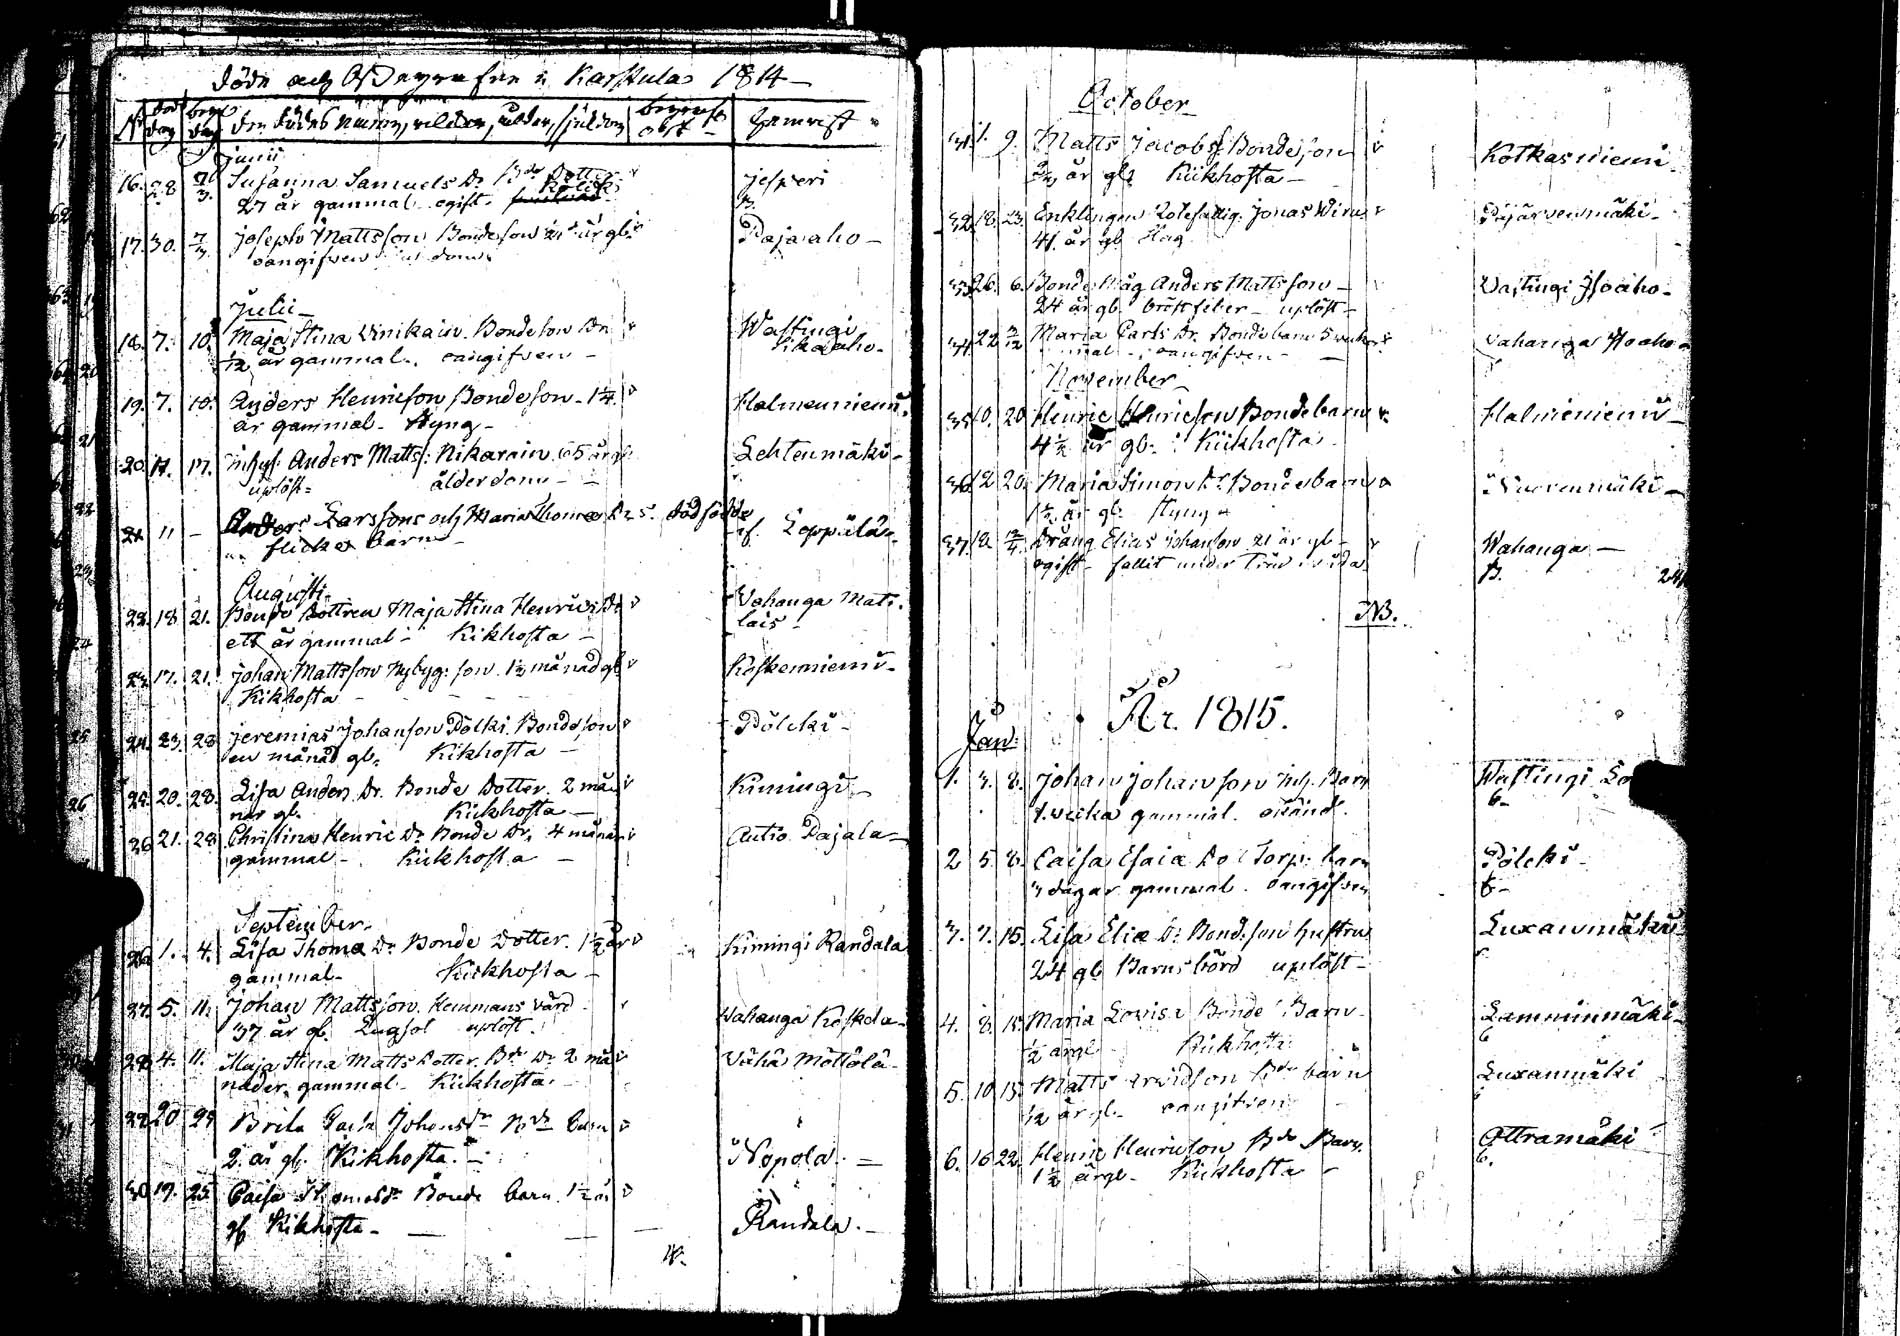 Döde och Begrafne i Karstula 1814
No död dag begr dag Den dödes namn, vilckor, ålder, sjukdom begrafn ort hemvist
Junii
16. 28 7/3. Susanna Samuels Dr Bde Dotter v Jesperi
27 år gammal ogift Kolick
17. 30. 7/3 Joseph Mattsson Bondeson år gl. v Pajaaho
oangifven
Julii
18. 7. 10. Maja Stina Vinikain Bondeson Dr v Wastingi
1/2 år gammal. oangifven Sikaaho
19. 7. 10. Anders Henricson Bondeson 1 1/4 v Halmeniemi
år gammal Styng
20. 11. 17. Inhys: Anders Matts: Nikarain 65 år gl Lehtomäki
uplöst ålderdom
21 11 - Anders Larssons och Maria Thomæ Dr s. dödfödde
flicke barn Leppälä
Augusti
22. 18 21. Bonde Dottren Maja Stina Henrics Dr v Wahanga Mati
ett år gammal Kikhosta lais
23. 17. 21. Johan Mattsson Nybyg: son 1 1/2 månad gl v Koskenniemi
Kikhosta
24. 23. 28 Jeremias Johanson Pölki Bondeson v Pölcki
en månad gl. Kikhosta
25. 20. 28. Lisa Anders Dr Bonde Dotter. 2 må v Kimingi
nar gl. Kikhosta
26 21. 28 Christina Henric Dr Bonde Dr. 4 månar v Autio Pajala
gammal Kikhosta
September
26 1. 4. Lisa Thomæ Dr Bonde Dotter. 1 1/2 år v Kimingi Randala
gammal Kikhosta
27. 5. 11. Johan Mattsson Hemmans värd v Wahanga Koskola
37 år gl. Lugsot uplöst
28 4. 11. Maja Stina Matts Dotter Bde Dr 2 må v Vähä Möttölä
nader gammal Kikhosta
29 20 25 Brita Caisa Johansdr Bde barn v
2 år gl Kikhosta Nopola
30 19. 25 Caisa Thomasdr Bonde barn 1 1/2 år v
gl Kikhosta Randala
October
31. 1. 9. Matts Jacobss: Bondeson v Kotkasniemi
år gl. Kikhosta
32 18. 23. Enklingen Rotefattig. Jonas Wiru v Pääjärvenmäki
41 år gl Håg
33 26 6. Bonde Måg Anders Mattsson Wastingi Isoaho
24 år gl. bröstfeber uplöst
34 22 Maria Carls Dr. Bondebarn 5 veckor Wahanga Isoaho
oangifven
November
35 10. 20 Henric Henricson Bondebarn v Halmeniemi
4 1/2 år gl. Kikhosta
36 12 20. Maria Simon Dr Bondebarn v Nuorenmäki
1 1/2 år gl. Styng
37 12. Dräng Elias Johanson 21 år gl v Wahanga
ogift fallit under
NB.
År 1815.
Jan:
1. 3. 8. Johan Johanson Inh. Barn Wastingi
1. vecka gammal. okänd.
2 5 8. Caisa Esaiæ Dr Torp: barn Pölcki
3 dagar gammal. oangifven
3. 7. 15. Lisa Eliæ Dr Bondeson hustru Luxanmäki
24 gl Barnsbörd uplöst
4. 8. 15. Maria Lovisa Bonde Barn Lamminmäki
1/2 år gl Kikhosta
5. 10 15. Matts Arvidson Bde barn Luxanmäki
1/2 år gl. oangifven
6. 16 22. Henric Henricson Bde Barn. Ottramäki
1 1/2 år gl. Kikhosta